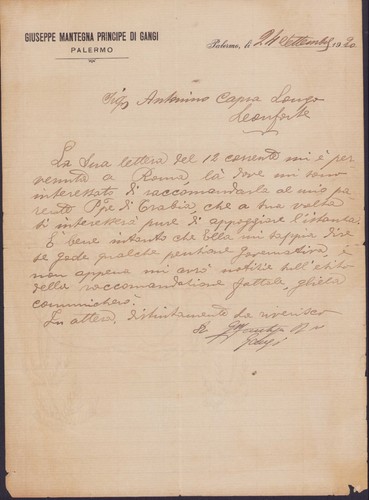 GIUSEPPE MANTEGNA PRINCIPE DI GANGI
PALERMO
Palermo, li 24 Settembre 1920
Sig. Antonino Capra Longo
Leonforte
La Sua lettera del 12 corrente mi è per
venuta a Roma là dove mi sono
interessato di raccomandarla al mio pa
rente Ppe di Trabia, che a sua volta
si interesserà pure di appoggiare l'istanza.
È bene intanto che Ella mi sappia dire
se gode qualche pensione governativa, e
non appena mi avrò notizie sull'esito
della raccomandazione fattale, gliela
comunicherò.
In attesa, distintamente La riverisco
Gangi